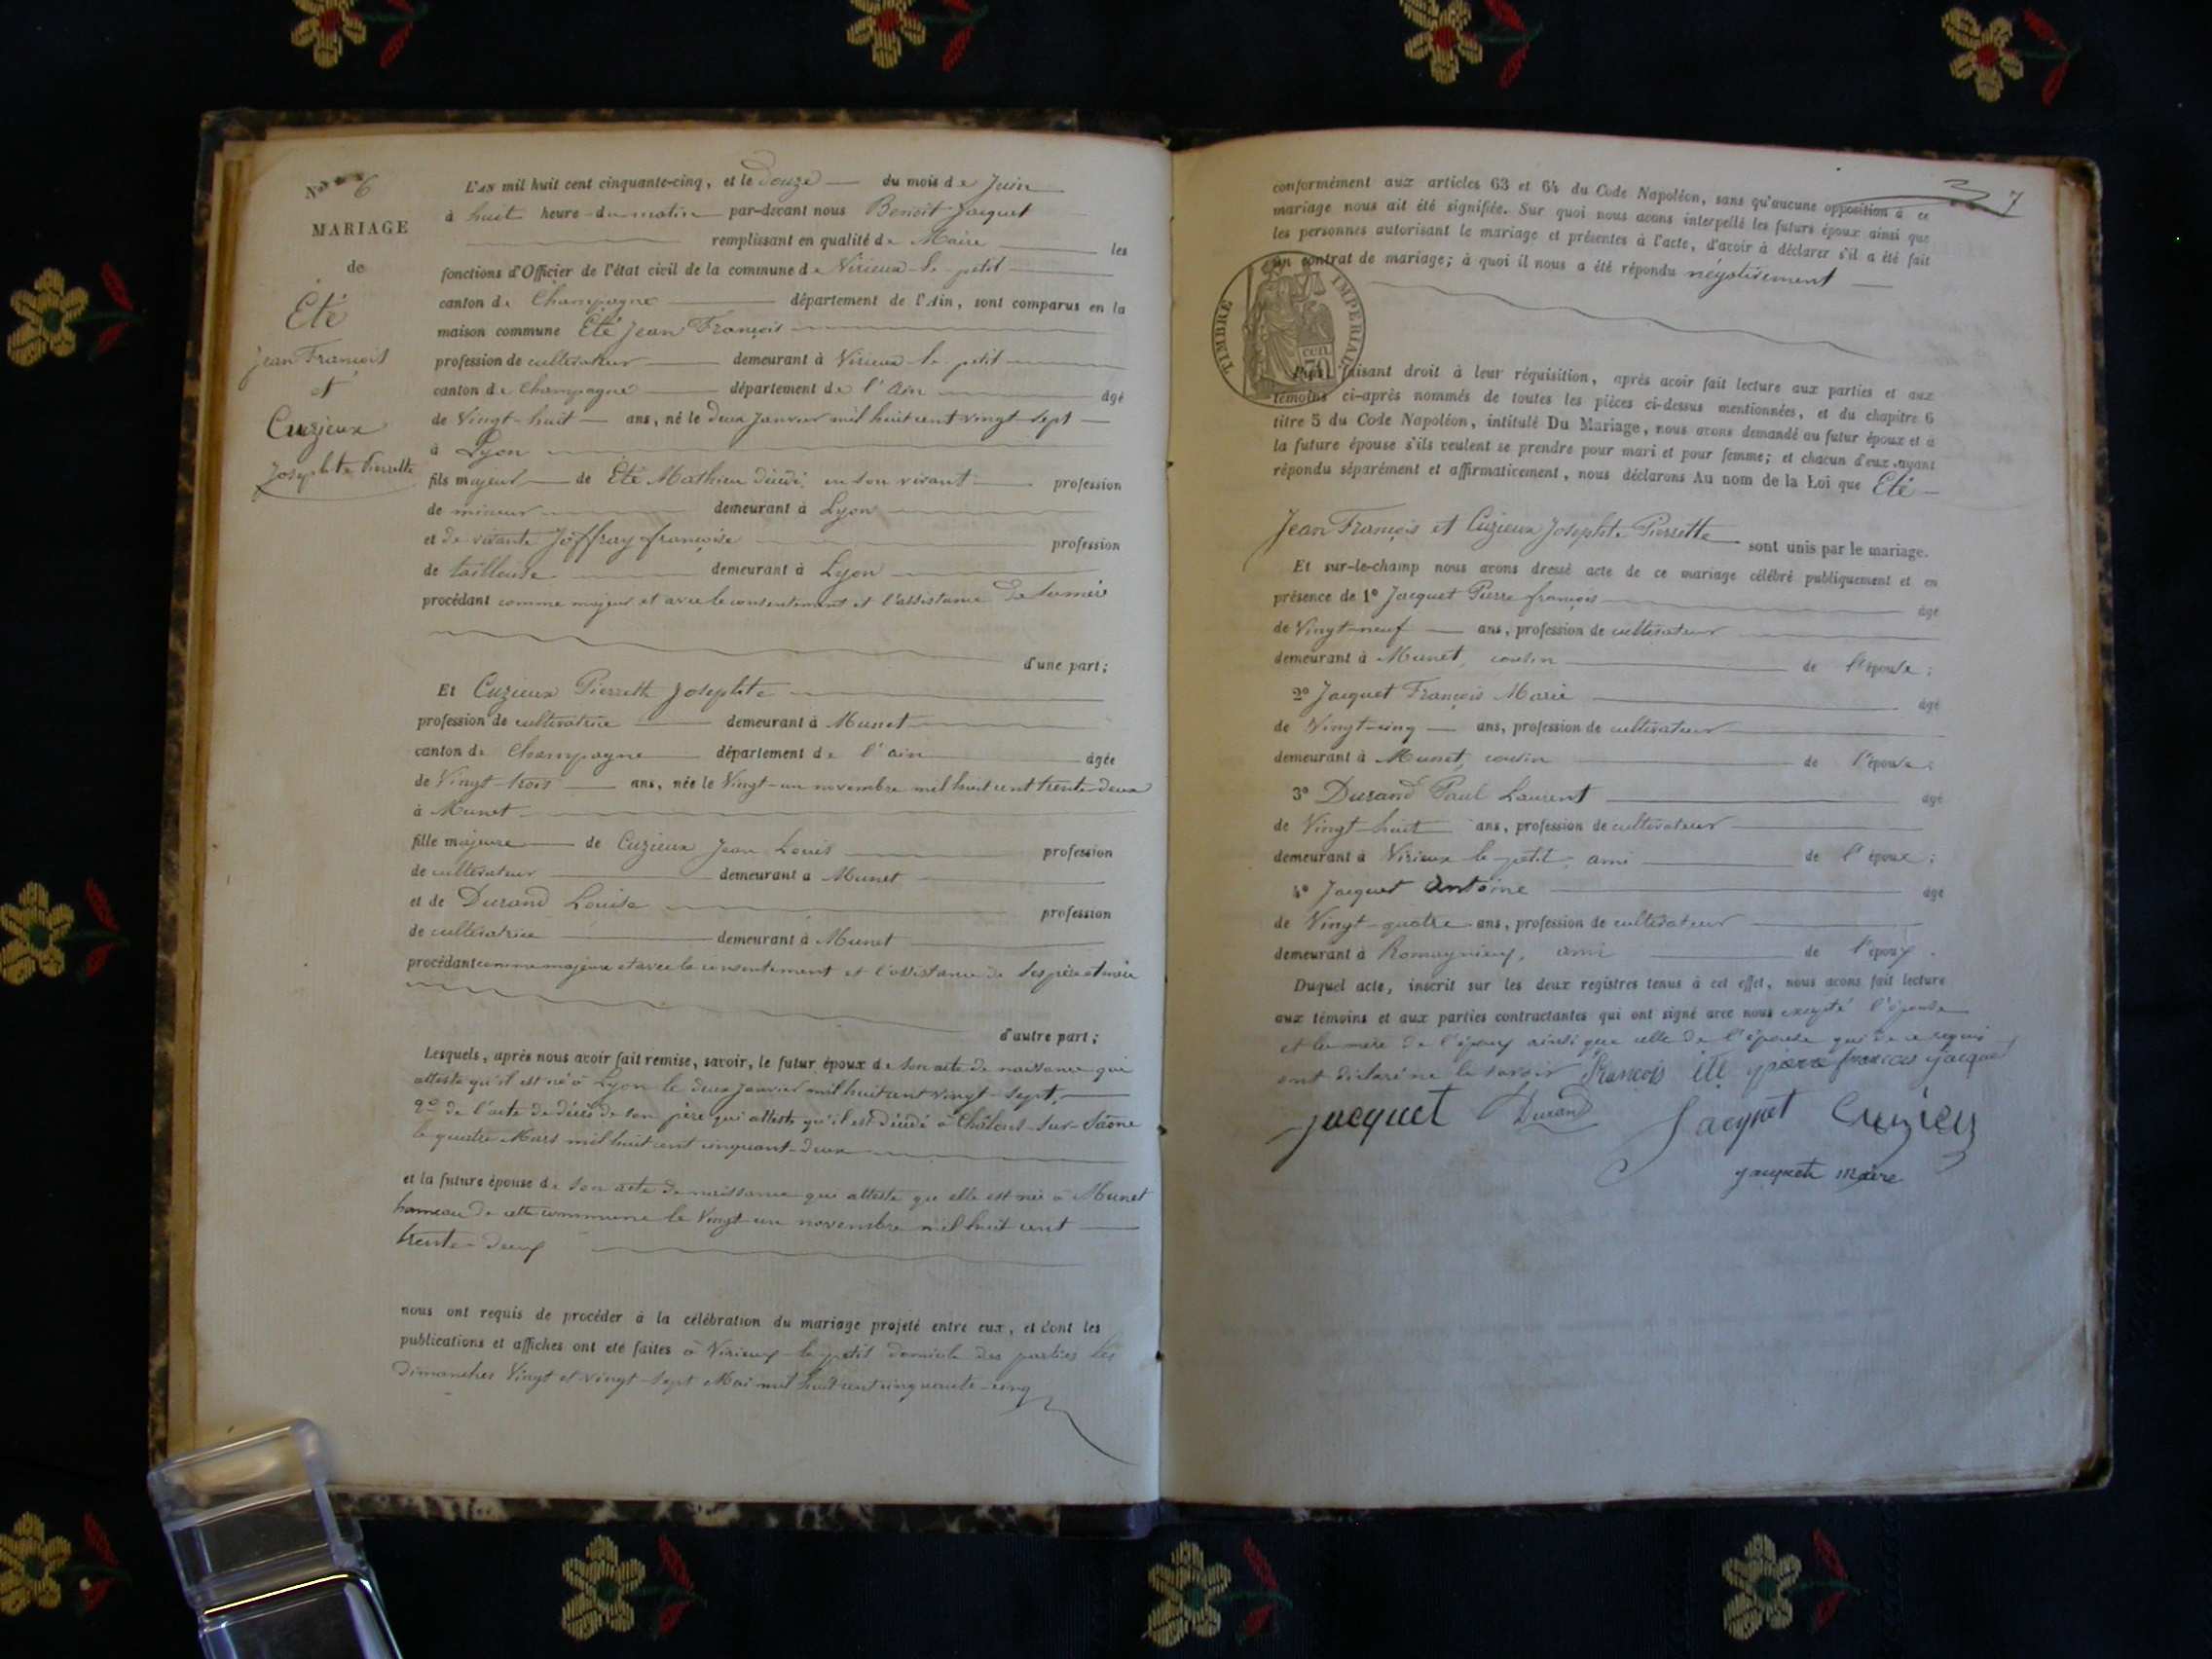 No 6
MARIAGE
de
Eté
Jean François
et
Cuzieux
Josephte Pierrette
L'AN mil huit cent cinquante-cinq, et le Douze du mois de Juin
à huit heure du matin par-devant nous Benoît Jacquet
remplissant en qualité de Maire les
fonctions d'Officier de l'état civil de la commune de Virieux-le-petit
canton de Champagne département de l'Ain, sont comparus en la
maison commune Eté Jean François
profession de cultivateur demeurant à Virieux-le-petit
canton de Champagne département de l'Ain âgé
de Vingt-huit ans, né le deux Janvier mil huit cent vingt-sept
à Lyon
fils majeur de Eté Mathieu décédé, en son vivant profession
de mineur demeurant à Lyon
et de vivante Joffray françoise profession
de tailleuse demeurant à Lyon
procédant comme majeur et avec le consentement et l'assistance de sa mère
d'une part;
Et Cuzieux Pierrette Josephte
profession de cultivatrice demeurant à Munet
canton de Champagne département de l'ain âgée
de Vingt-trois ans, née le Vingt-un novembre mil huit cent trente-deux
à Munet
fille majeure de Cuzieux Jean Louis profession
de cultivateur demeurant à Munet
et de Durand Louise profession
de cultivatrice demeurant à Munet
procédant comme majeure et avec le consentement et l'assistance de ses père et mère
d'autre part;
Lesquels, après nous avoir fait remise, savoir, le futur époux de son acte de naissance qui
atteste qu'il est né à Lyon le deux Janvier mil huit cent vingt-sept,
2° de l'acte de décès de son père qui atteste qu'il est décédé à Châlons-sur-Saône
le quatre Mars mil huit cent cinquant-deux
et la future épouse de son acte de naissance qui atteste que elle est née à Munet
hameau de cette commune le Vingt-un novembre mil huit cent
trente-deux
nous ont requis de procéder à la célébration du mariage projeté entre eux, et dont les
publications et affiches ont été faites à Virieux-le-petit domicile des parties les
Dimanches Vingt et vingt-sept Mai mil huit cent cinquante-cinq
7
conformément aux articles 63 et 64 du Code Napoléon, sans qu'aucune opposition à ce
mariage nous ait été signifiée. Sur quoi nous avons interpellé les futurs époux ainsi que
les personnes autorisant le mariage et présentes à l'acte, d'avoir à déclarer s'il a été fait
un contrat de mariage; à quoi il nous a été répondu négativement
TIMBRE IMPERIAL
70
Puis, faisant droit à leur réquisition, après avoir fait lecture aux parties et aux
témoins ci-après nommés de toutes les pièces ci-dessus mentionnées, et du chapitre 6
titre 5 du Code Napoléon, intitulé Du Mariage, nous avons demandé au futur époux et à
la future épouse s'ils veulent se prendre pour mari et pour femme; et chacun d'eux ayant
répondu séparément et affirmativement, nous déclarons Au nom de la Loi que Eté
Jean François et Cuzieux Josephte Pierrette sont unis par le mariage.
Et sur-le-champ nous avons dressé acte de ce mariage célébré publiquement et en
présence de 1° Jacquet Pierre françois âgé
de Vingt-neuf ans, profession de cultivateur
demeurant à Munet, cousin de l'épouse;
2° Jacquet François Marie âgé
de Vingt-cinq ans, profession de cultivateur
demeurant à Munet, cousin de l'épouse;
3° Durand Paul Laurent âgé
de Vingt-huit ans, profession de cultivateur
demeurant à Virieux le-petit, ami de l'époux;
4° Jacquet Antoine âgé
de Vingt-quatre ans, profession de cultivateur
demeurant à Romagnieux, ami de l'époux.
Duquel acte, inscrit sur les deux registres tenus à cet effet, nous avons fait lecture
aux témoins et aux parties contractantes qui ont signé avec nous excepté l'épouse
et la mère de l'époux ainsi que celle de l'épouse qui de ce requis
ont déclaré ne le savoir François Eté pierre francois jacquet
Jacquet Durand Jacquet Cuzieu
jacquet maire